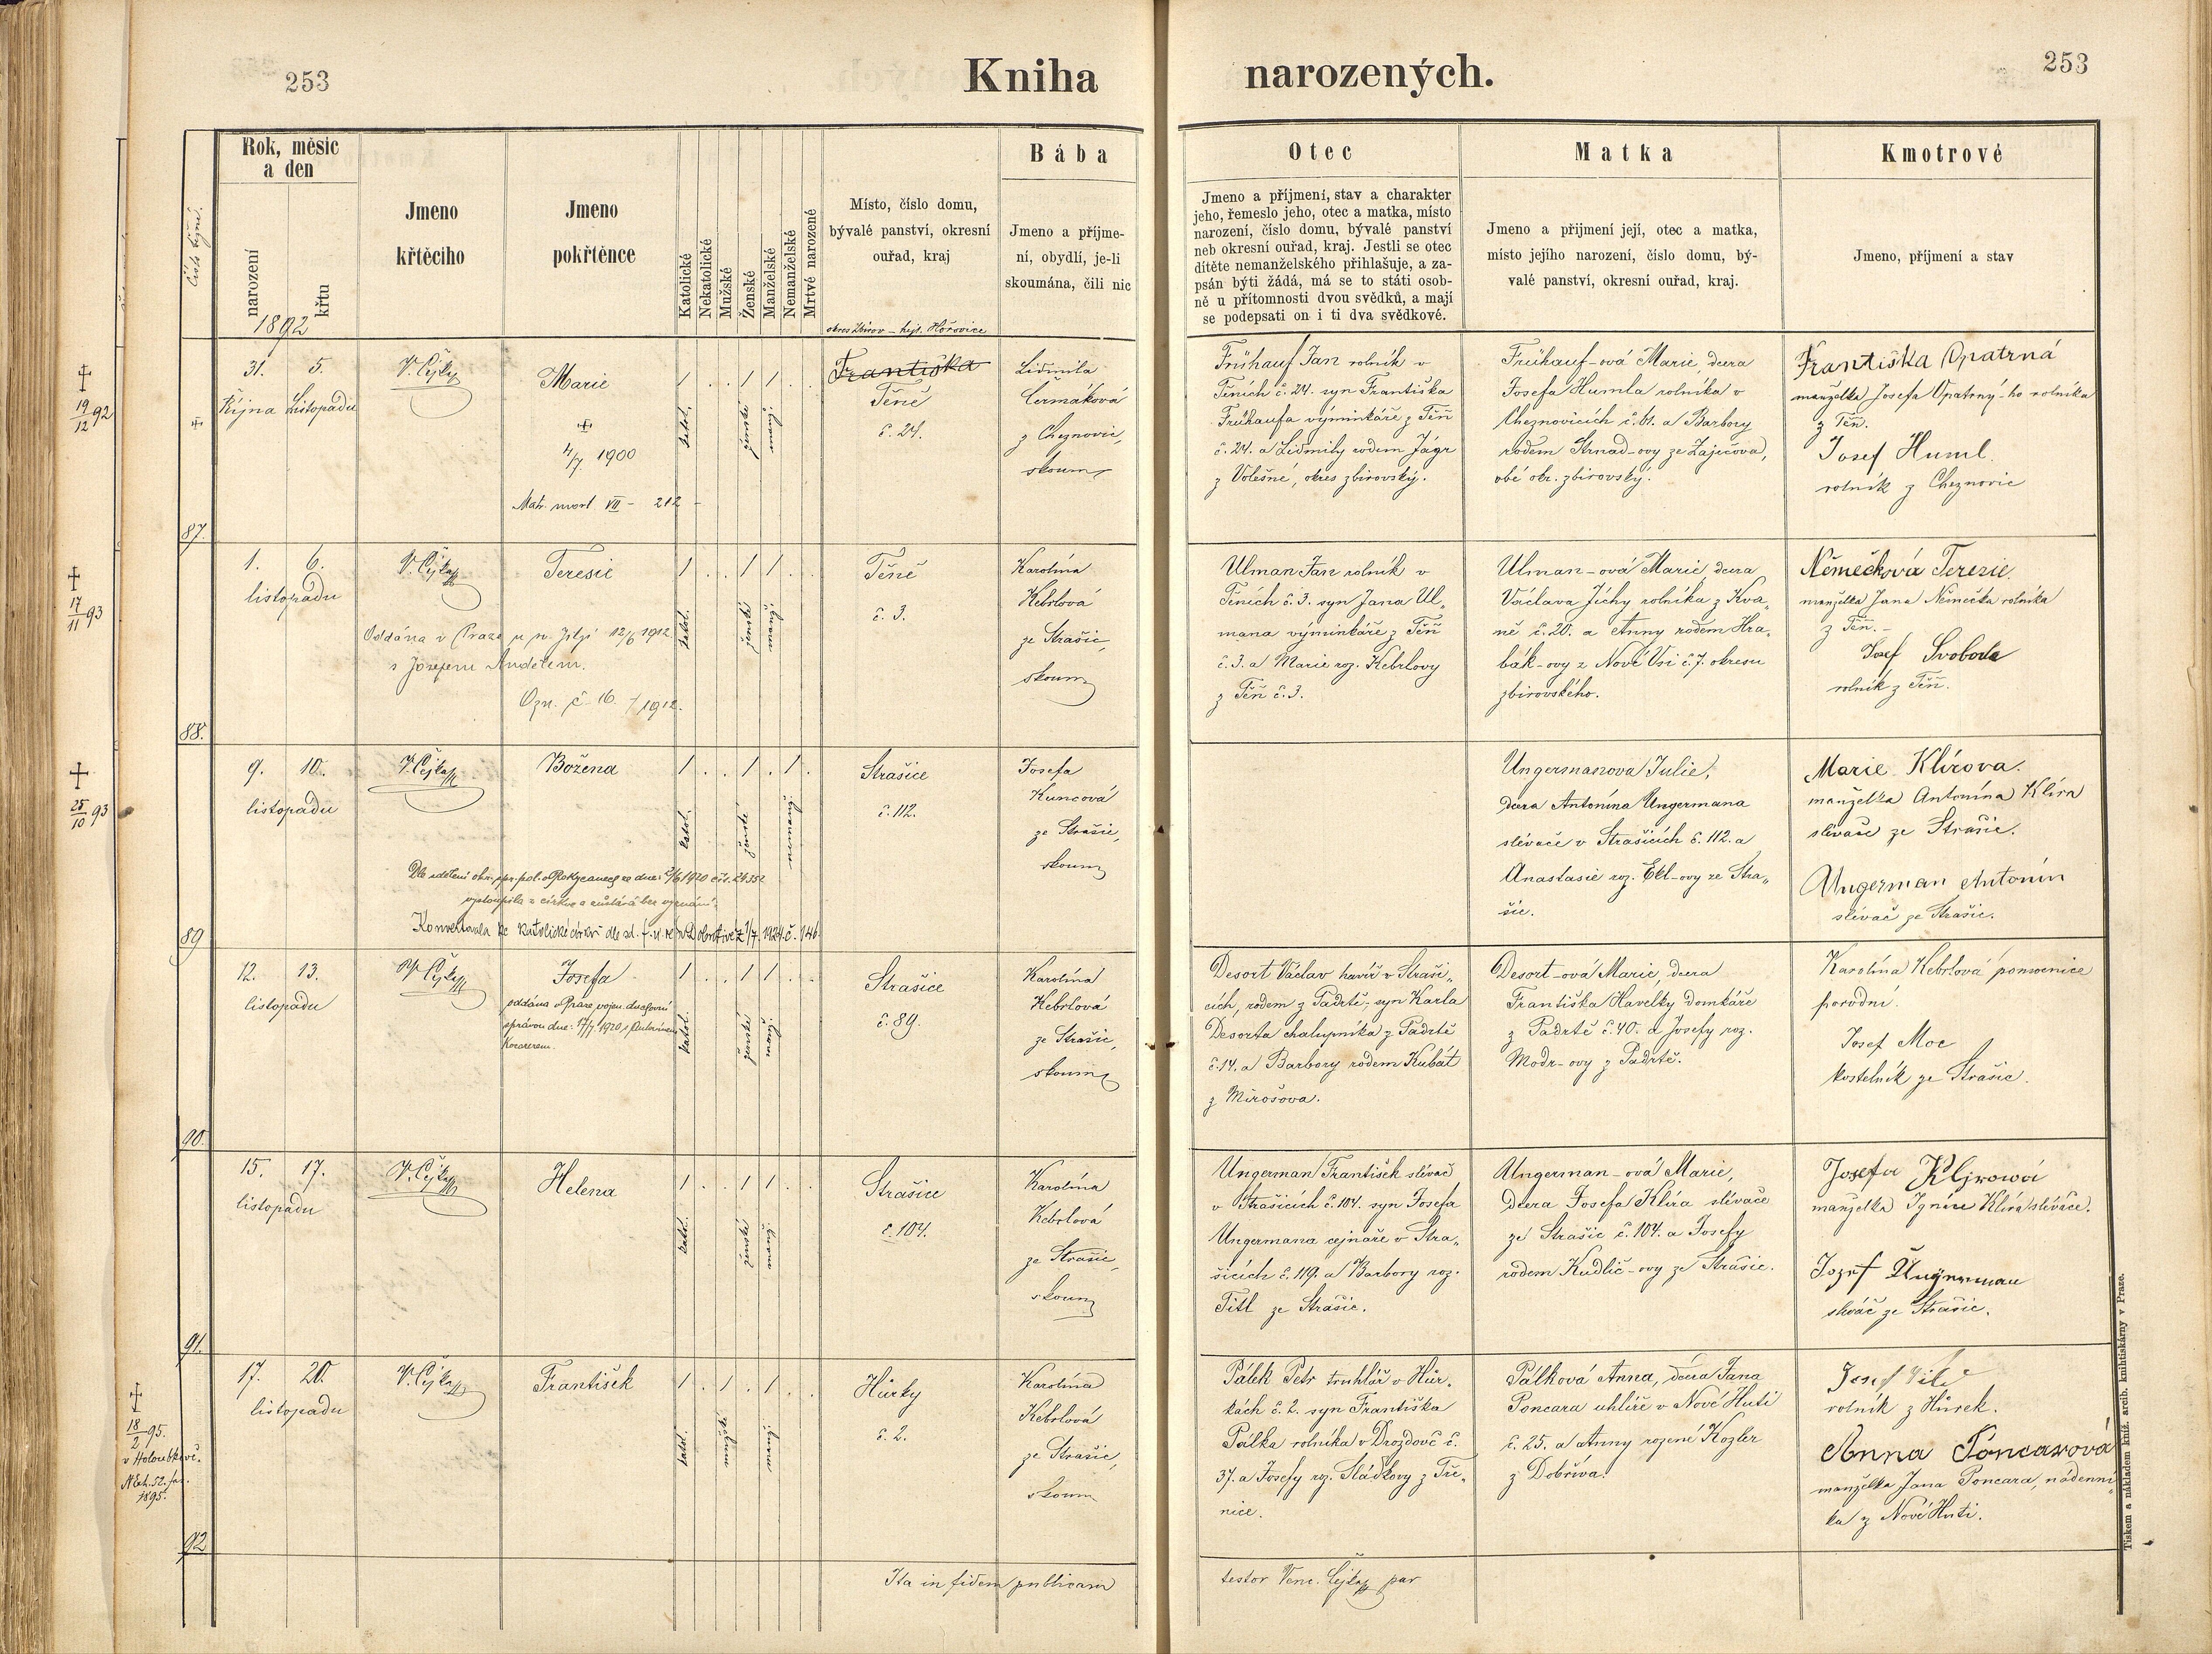 253
Kniha
narozených.
253
Číslo
Rok, měsíc
a den
narození
křtu
1892
Jmeno
křtěcího
Jmeno
pokřtěnce
Katolické
Nekatolické
Mužské
Ženské
Manželské
Nemanželské
Mrtvě narozené
Místo, číslo domu,
bývalé panství, okresní
ouřad, kraj
okres Zbirov – hejt. Hořovice
Bába
Jmeno a příjme-
ní, obydlí, je-li
skoumána, čili nic
Otec
Jmeno a příjmení, stav a charakter
jeho, řemeslo jeho, otec a matka, místo
narození, číslo domu, bývalé panství
neb okresní ouřad, kraj. Jestli se otec
dítěte nemanželského přihlašuje, a za-
psán býti žádá, má se to státi osob-
ně u přítomnosti dvou svědků, a mají
se podepsati on i ti dva svědkové.
Matka
Jmeno a přijmení její, otec a matka,
místo jejího narození, číslo domu, bý-
valé panství, okresní ouřad, kraj.
Kmotrové
Jmeno, přijmení a stav
19/12 92
87.
31. 5.
Října Listopadu
V. Čejka
Marie
4/7 1900
Matr. mort VII – 212
katol.
ženské
manž.
Františka
Těně
č. 24.
Lidmila
Čermáková
z Cheznovic,
skoum.
Frühauf Jan rolník v
Těních č. 24. syn Františka
Frühaufa výminkáře z Těň
č. 24. a Lidmily rodem Jágr
z Volešné, okres zbirovský.
Frühauf-ová Marie, dcera
Josefa Humla rolníka v
Cheznovicích č. 61. a Barbory
rodem Strnad-ovy ze Zaječova,
obé okr. zbirovský.
Františka Opatrná
manželka Josefa Opatrný-ho rolníka
z Těň.
Josef Huml.
rolník z Cheznovic
17/11 93
88.
1. 6.
listopadu
V. Čejka
Terezie
Oddána v Praze u sv. Jiljí 12/6 1912
s Josefem Andělem.
Ozn. č. 16. / 1912.
katol.
ženské
manž.
Těně
č. 3.
Karolína
Kebrlová
ze Strašic,
skoum.
Ulman Jan rolník v
Těních č. 3. syn Jana Ul-
mana výminkáře z Těň
č. 3. a Marie roz. Kebrlovy
z Těň č. 3.
Ulman-ová Marie dcera
Václava Jíchy rolníka z Kva-
ně č. 20. a Anny rodem Hra-
bák-ovy z Nové Vsi č. 7. okresu
zbirovského.
Němečková Terezie.
manželka Jana Němečka rolníka
z Těň.
Josef Svoboda
rolník z Těň.
25/10 93
89
9. 10.
listopadu
V. Čejka
Božena
Dle sdělení okr. spr. pol. v Rokycanech ze dne 2/6 1920 čís. 24352
vystoupila z církve a zůstává bez vyznání.
Konvertovala ke katolické církvi
katol.
ženské
nemanž.
Strašice
č. 112.
Josefa
Kuncová
ze Strašic,
skoum.
Ungermanova Julie,
dcera Antonína Ungermana
slévače v Strašicích č. 112. a
Anastasie roz. Ekl-ovy ze Stra-
šic.
Marie Klírova.
manželka Antonína Klíra
slévače ze Strašic.
Ungerman Antonín
slévač ze Strašic.
90.
12. 13.
listopadu
V. Čejka
Josefa
oddána v Praze vojen. duchovní
správou dne: 17/7 1920 s
katol.
ženské
manž.
Strašice
č. 89.
Karolína
Kebrlová
ze Strašic,
skoum.
Desort Václav havíř v Straši-
cích, rodem z Padrtě, syn Karla
Desorta chalupníka z Padrtě
č. 14. a Barbory rodem Kubát
z Mirošova.
Desort-ová Marie, dcera
Františka Havelky domkáře
z Padrtě č. 40. a Josefy roz.
Modr-ovy z Padrtě.
Karolína Kebrlová pomocnice
porodní.
Josef Moc
kostelník ze Strašic.
91.
15. 17.
listopadu
V. Čejka
Helena
katol.
ženské
manž.
Strašice
č. 104.
Karolína
Kebrlová
ze Strašic,
skoum.
Ungerman František slévač
v Strašicích č. 104. syn Josefa
Ungermana cejnáře v Stra-
šicích č. 119. a Barbory roz.
Titl ze Strašic.
Ungerman-ová Marie,
dcera Josefa Klíra slévače
ze Strašic č. 104. a Josefy
rodem Kudlič-ovy ze Strašic.
Josefa Kljrowá
manželka Ignáce Klíra slévače.
Jozef Ungerman
slévač ze Strašic.
18/2 95.
v Holoubkově.
1895.
92
17. 20.
listopadu
V. Čejka
František
katol.
mužské
manž.
Hůrky
č. 2.
Karolína
Kebrlová
ze Strašic,
skoum.
Pálek Petr truhlář v Hůr-
kách č. 2. syn Františka
Pálka rolníka v Drozdově č.
37. a Josefy roz. Sládkovy z Tře-
nice.
Pálková Anna, dcera Jana
Poncara uhlíře v Nové Huti
č. 25. a Anny rozené Kozler
z Dobříva.
Josef
rolník z Hůrek.
Anna Poncarová
manželka Jana Poncara, nádenní-
ka z Nové Huti.
Ita in fidem publicam
testor Venc. Čejka par
Tiskem a nákladem kníž. arcib. knihtiskárny v Praze.